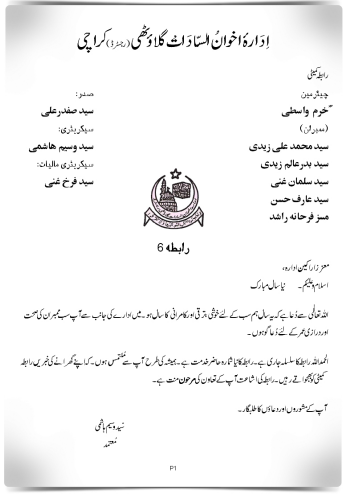 اِدارۂ اخوانُ السّادات گلاؤٹھی (رجسٹرڈ) کراچی
رابطہ کمیٹی
چیئرمین
خرم واسطی
(ممبران)
سید محمد علی زیدی
سید بدرعالم زیدی
سید سلمان غنی
سید عارف حسن
مسز فرحانہ راشد
صدر:
سید صفدرعلی
سیکریٹری:
سید وسیم ہاشمی
سیکریٹری مالیات:
سید فرخ غنی
رابطہ 6
معزز اراکینِ ادارہ،
اسلام وعلیکم۔ نیا سال مبارک
اللہ تعالیٰ سے دُعا ہے کہ یہ سال ہم سب کے لئے خوشی، ترقی اور کامرانی کا سال ہو۔ میں ادارے کی جانب سے آپ سب ممبران کی صحت
اور درازی عمر کے لئے دُعا گو ہوں۔
الحمد اللہ رابطے کا سلسلہ جاری ہے۔ رابطے کا نیا شمارہ حاضر خدمت ہے۔ ہمیشہ کی طرح آپ سے مُلتمس ہوں۔ کہ اپنے گھرانے کی خبریں رابطہ
کمیٹی کو بھجواتے رہیں۔ رابطہ کی اشاعت آپ کے تعاون کی مرحونِ منت ہے۔
آپ کے مشوروں اور دعاؤں کا طلبگار۔
سید وسیم ہاشمی
مُعتمد
P1